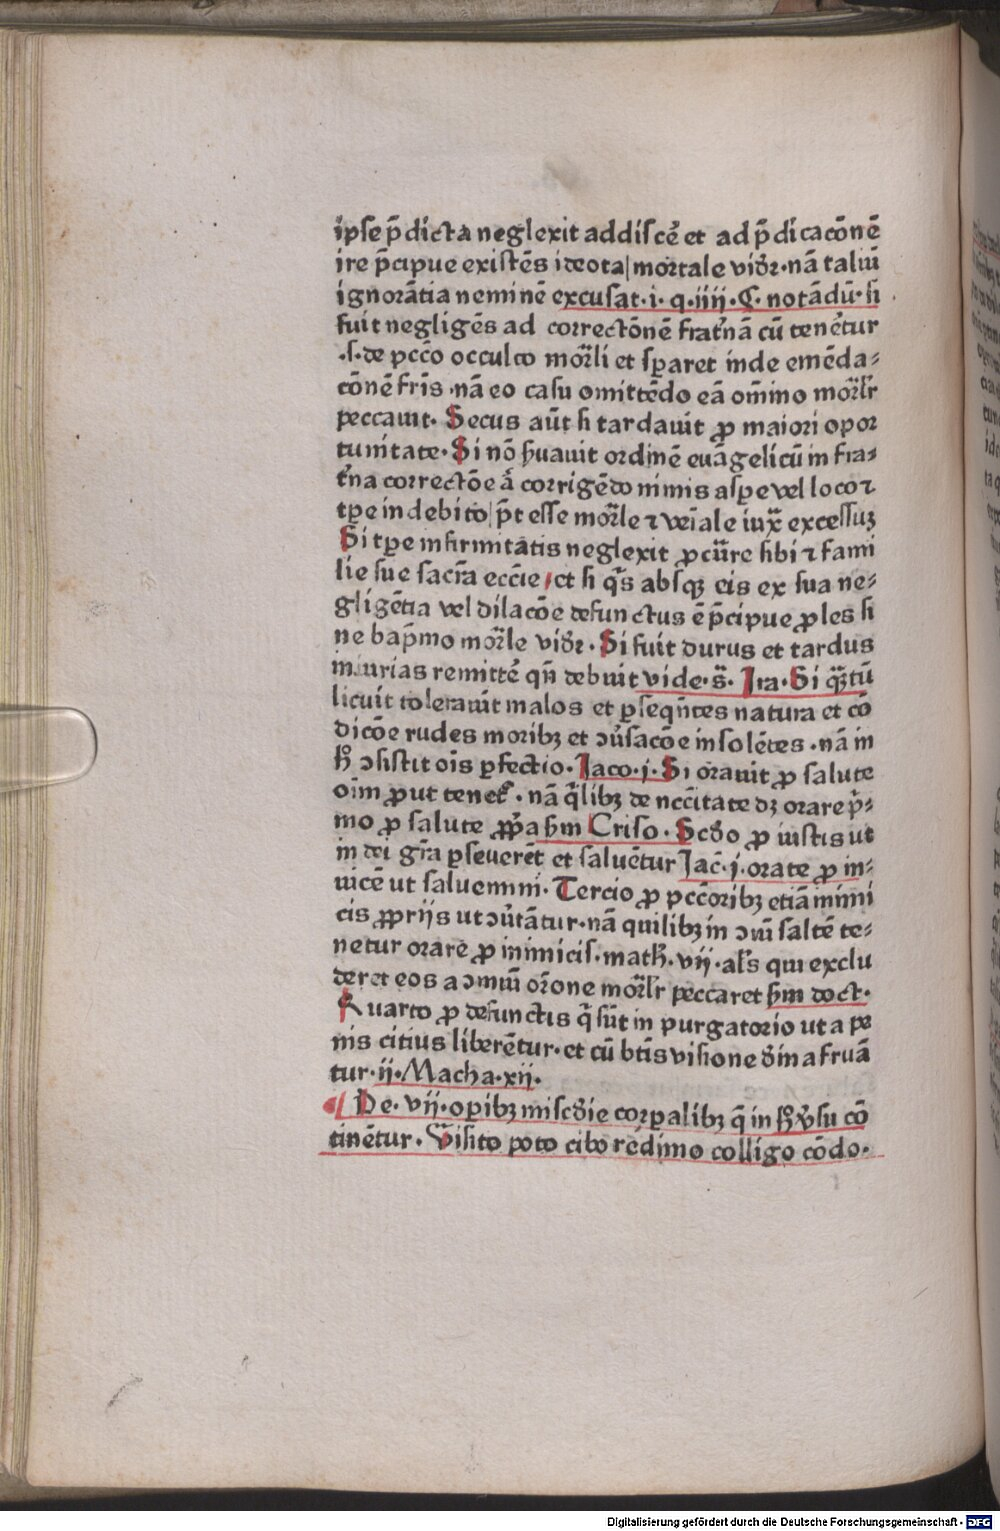 ipse p̄dicta neglexit addiscē̉ et ad p̄dicacōnē
ire p̄cipue existēs ideota|mortale vid̄r·nā taliū
ignorātia neminē excusat·i·q·iiij·C·notādū·si
fuit negligēs ad correctōnē frat̉nā cū tenētur
·s·de pccō occulto mor̄li et sp̱aret inde emēda⸗
cōnē fr̄is·nā eo casu omittēdo eā om̄ino mor̄lr
peccauit·Secus aūt si tardauit ꝓ maiori opor
tunitate·Si nō ẜuauit ordinē euāgelicū in fra⸗
t̉na correctōe a̓ corrigēdo nimis asꝑe vel loco ⁊
tꝑe indebito|pt̄ esse mor̄le ⁊ veīale iux̄ excessuꝫ
Si tꝑe infirmitātis neglexit ꝓcur̄e sibi ⁊ fami
lie sue sacr̄a eccīe/et si q̄s absqꝫ eis ex sua ne⸗
gligētia vel dilacōe defunctus ē p̄cipue ꝓles si
ne bap̄mo mor̄le vid̄r·Si fuit durus et tardus
iniurias remittē̉ qn̄ debuit vide·s̄·Ira·Si qꝫ̄tū
licuit tolerauit malos et ꝑseqn̄tes natura et cō
dicōe rudes moribꝫ et ɔu̓sacōe insolētes·nā in
h̊ ɔsistit oīs ꝑfectio·Jaco·j·Si orauit ꝓ salute
oīm ꝓut tenet̉·nā q̄libꝫ de nccītate dꝫ orare p̓⸗
mo ꝓ salute ꝓp̄a sm̄ Criso·Scd̄o ꝓ iustis ut
in dei gr̄a ꝑseuerēt et saluētur Jac̄·j·orate ꝓ in⸗
uicē ut saluemini·Tercio ꝓ pccōribꝫ etiā inimi
cis ꝓprijs ut ɔu̓tātur·nā quilibꝫ in ɔm̄i saltē te⸗
netur orare ꝓ inimicis·math̄·vij·al̄s qui exclu
deret eos a ɔmūi or̄one mor̄lr peccaret sm̄ doct·
Quarto ꝓ defunctis q̄ sūt in purgatorio ut a pe
nis citius liberētur·et cū btīs visione diīna fruā
tur·ij·Macha·xij·
De·vij·oꝑibꝫ misc̄die corꝑalibꝫ q̄ in h̊ v̓su cō
tinētur·Visito poto cibo redimo colligo cōdo·
Digitalisierung gefördert durch die Deutsche Forschungsgemeinschaft · DFG